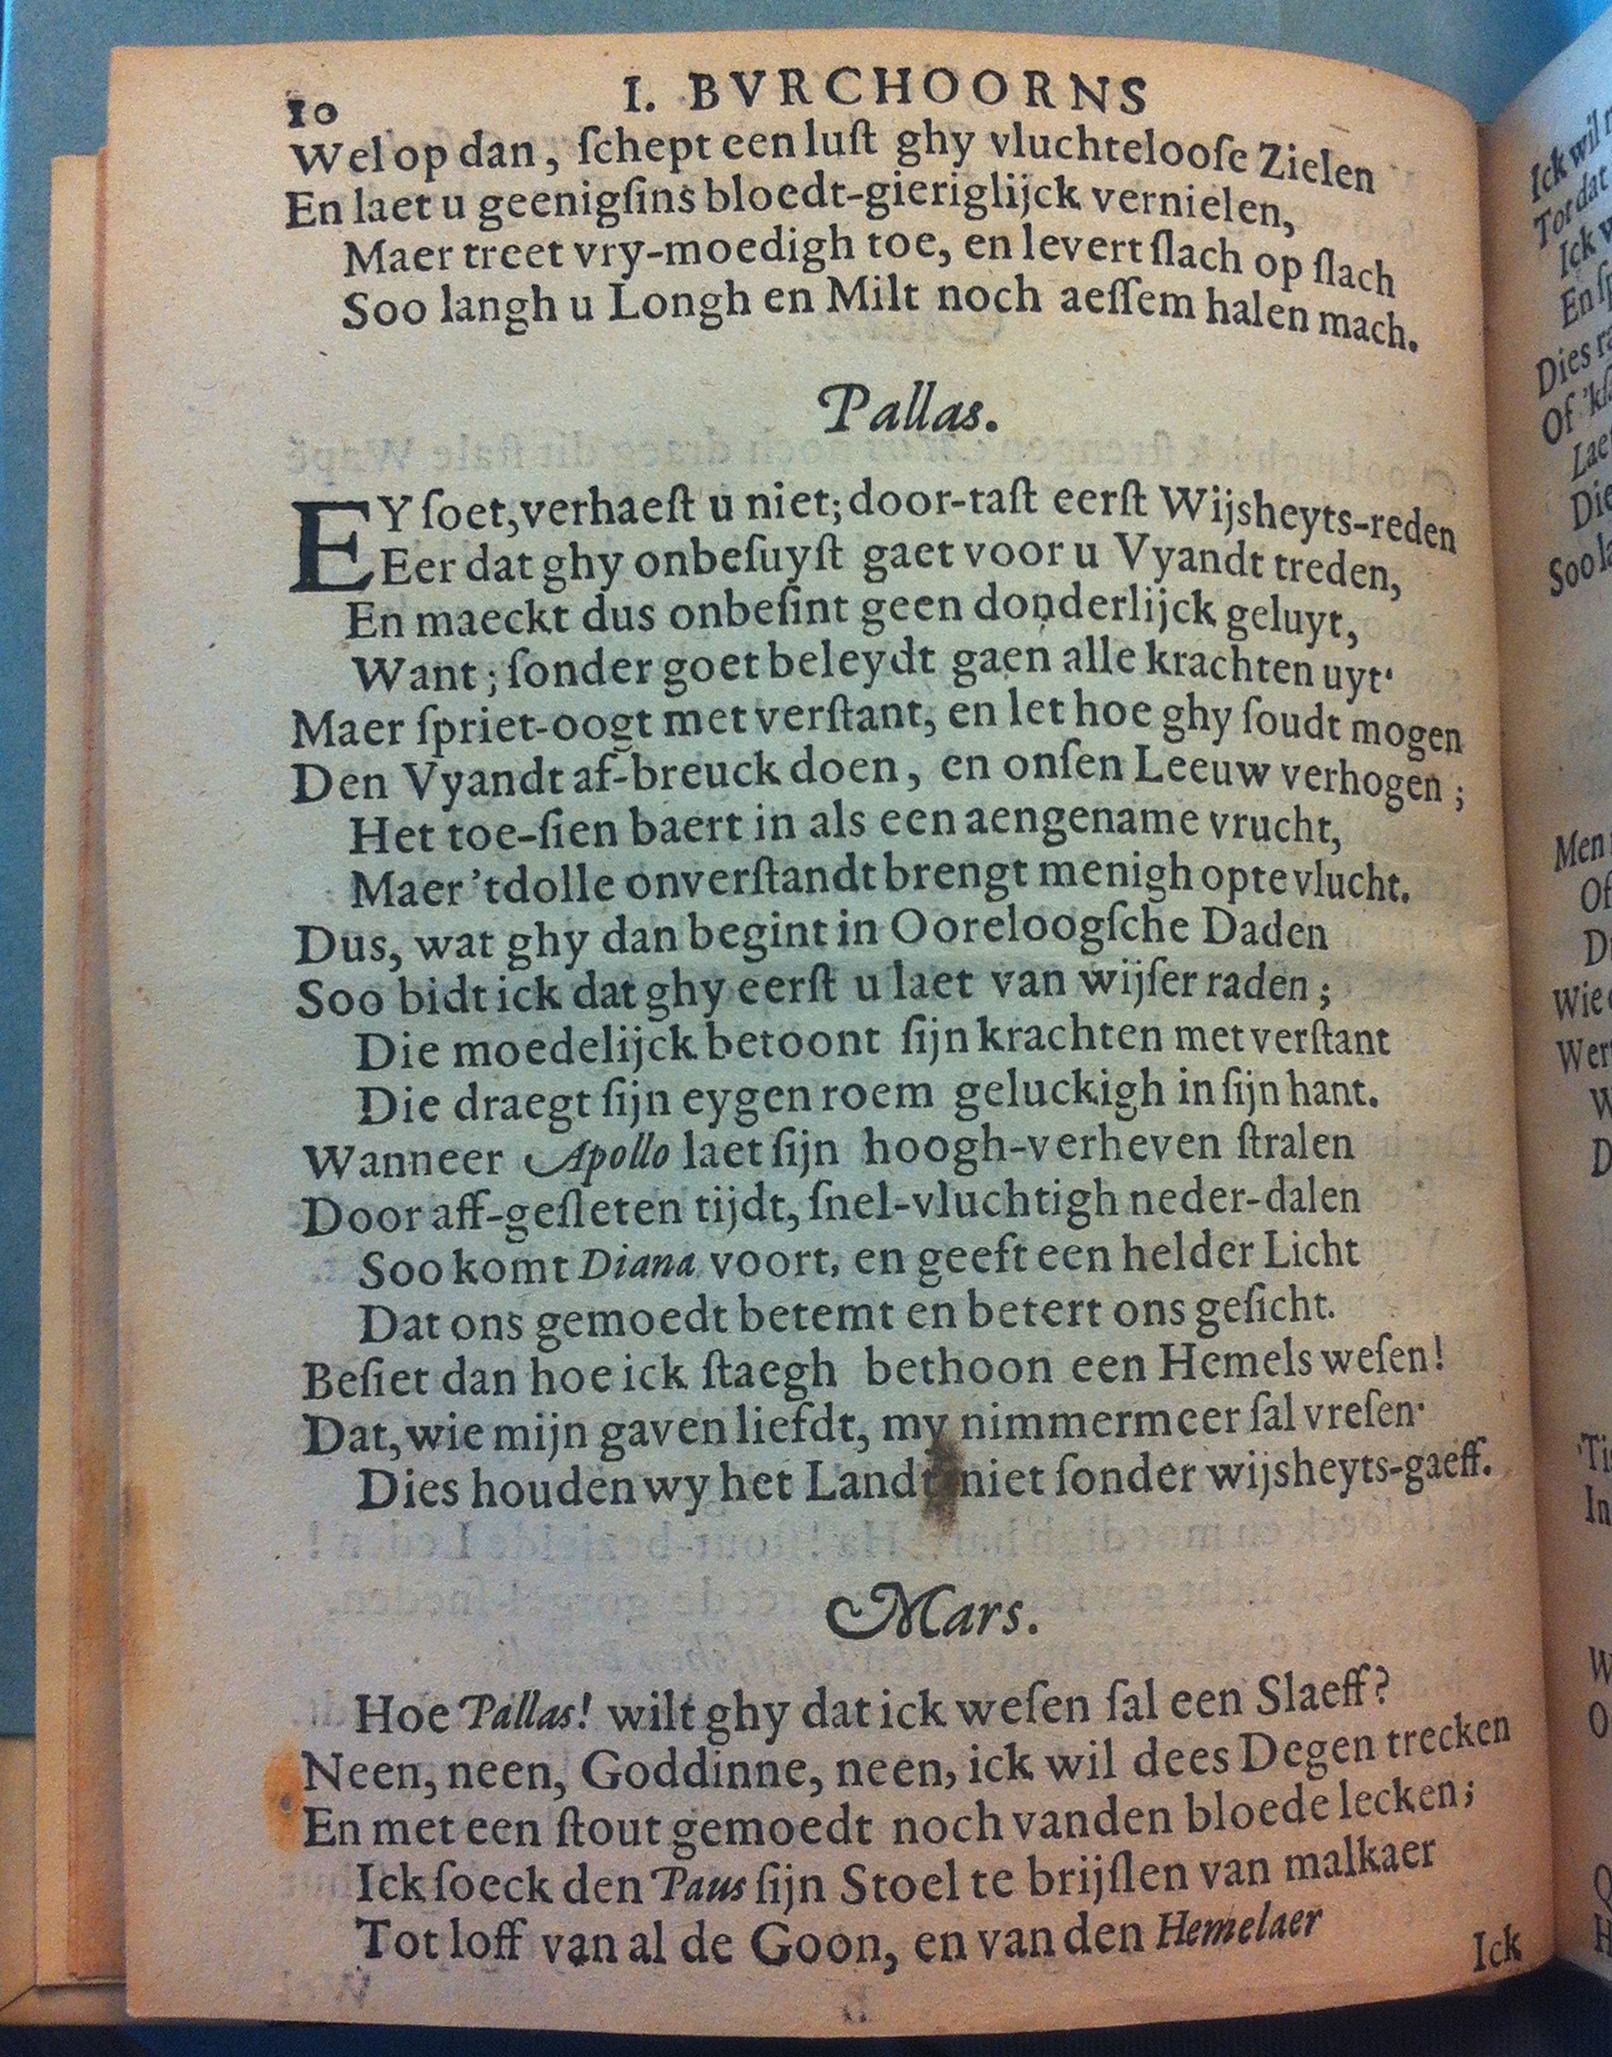 10 I. BVRCHOORNS
Wel op dan, ſchept een luſt ghy vluchtelooſe Zielen
En laet u geenigſins bloedt-gieriglijck vernielen,
Maer treet vry-moedigh toe, en levert ſlach op ſlach
Soo langh u Longh en Milt noch aeſſem halen mach.
Pallas.
EY ſoet, verhaeſt u niet; door-taſt eerſt Wijsheyts-reden
Eer dat ghy onbeſuyſt gaet voor u Vyandt treden,
En maeckt dus onbeſint geen donderlijck geluyt,
Want; ſonder goet beleydt gaen alle krachten uyt.
Maer ſpriet-oogt met verſtant, en let hoe ghy ſoudt mogen
Den Vyandt af-breuck doen, en onſen Leeuw verhogen;
Het toe-ſien baert in als een aengename vrucht,
Maer 'tdolle onverſtandt brengt menigh opte vlucht.
Dus, wat ghy dan begint in Ooreloogſche Daden
Soo bidt ick dat ghy eerſt u laet van wijſer raden;
Die moedelijck betoont ſijn krachten met verſtant
Die draegt ſijn eygen roem geluckigh in ſijn hant.
Wanneer Apollo laet ſijn hoogh-verheven ſtralen
Door aff-geſleten tijdt, ſnel-vluchtigh neder-dalen
Soo komt Diana voort, en geeft een helder Licht
Dat ons gemoedt betemt en betert ons geſicht.
Beſiet dan hoe ick ſtaegh bethoon een Hemels weſen!
Dat, wie mijn gaven liefdt, my nimmermeer ſal vreſen.
Dies houden wy het Landt niet ſonder wijsheyts-gaeff.
Mars.
Hoe Pallas! wilt ghy dat ick weſen ſal een Slaeff?
Neen, neen, Goddinne, neen, ick wil dees Degen trecken
En met een ſtout gemoedt noch vanden bloede lecken;
Ick ſoeck den Paus ſijn Stoel te brijſlen van malkaer
Tot loff van al de Goon, en van den Hemelaer
Ick
Ick wil
Tot dat
Ick
Dies
Of 'kſ
Die
Men
Of
Wie
In